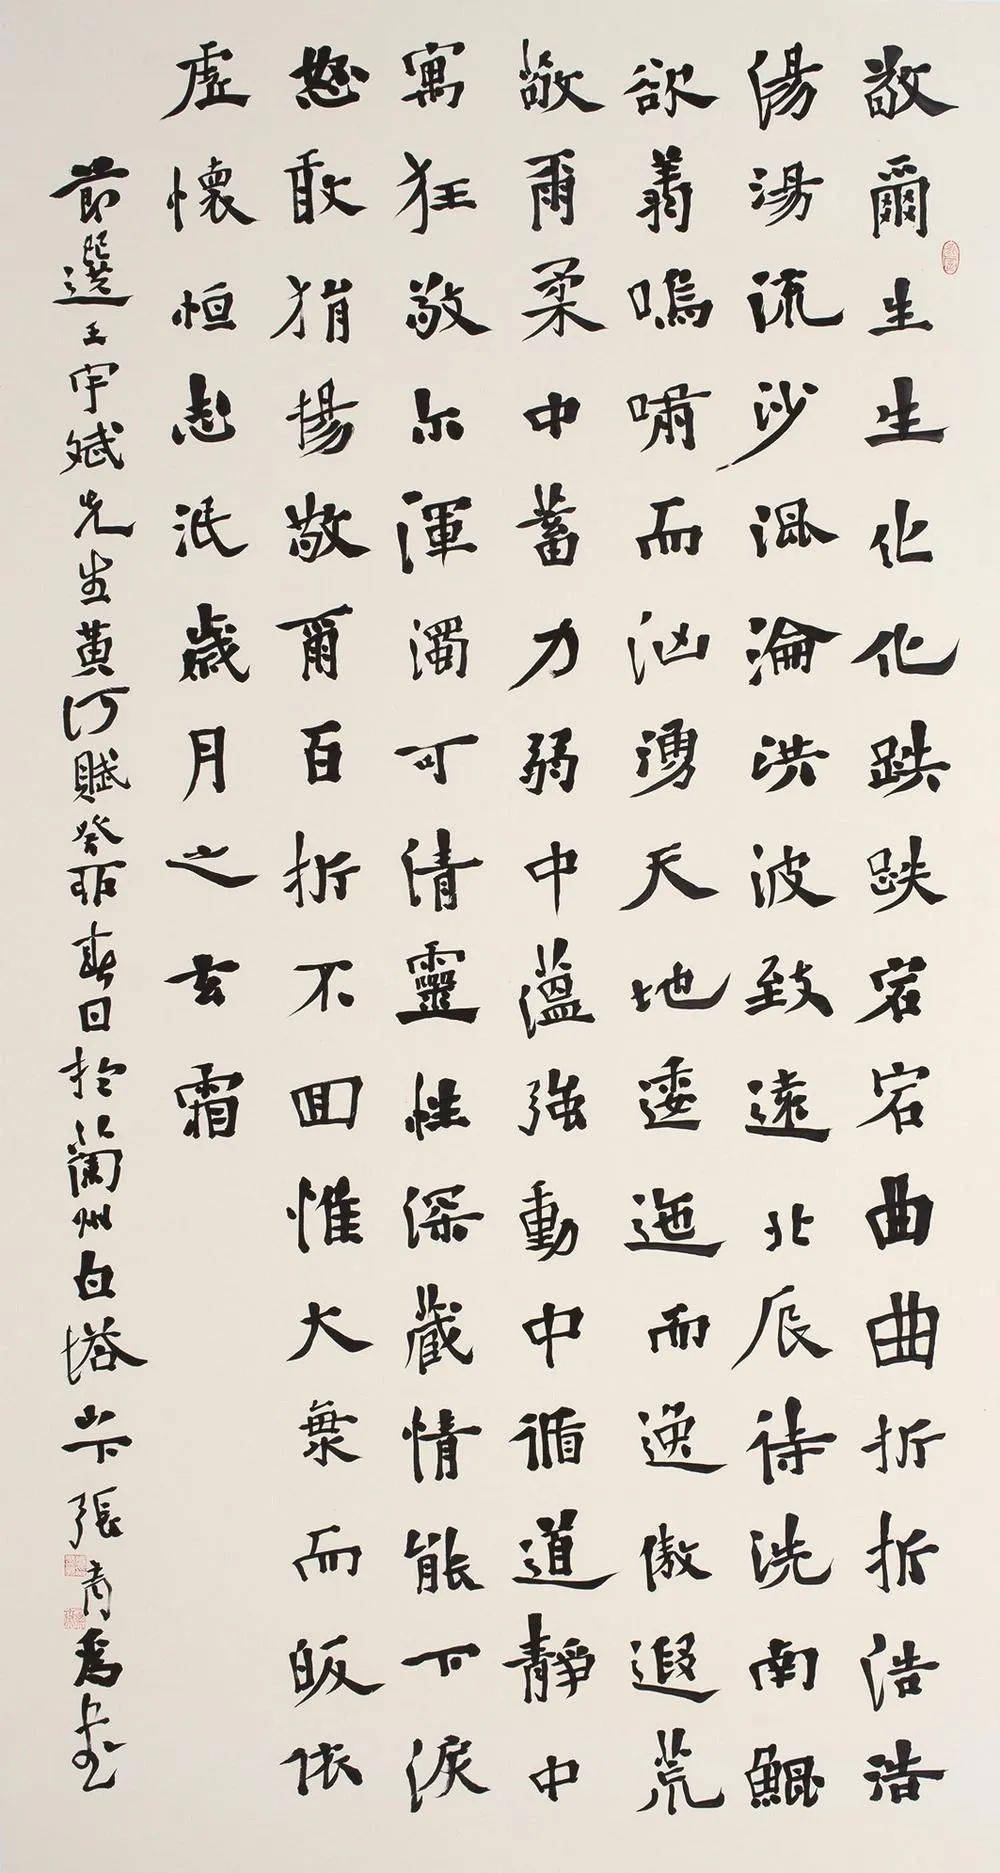 敬爾生生化化跌跌宕宕曲曲折折浩浩
湯湯流沙混淪洪波致遠北辰待洗南鯤
欲翥嗚嘯而洶湧天地逶迤而逸傲遐荒
敬爾柔中蓄力弱中蘊強動中循道靜中
寓狂敬尔渾濁可清靈性深藏情能下淚
怒敢狷揚敬爾百折不回惟大衆而皈依
虛懷恒泯歲月之玄霜
節選王宇斌先生黃河賦癸卯春日於蘭州白塔山下張青